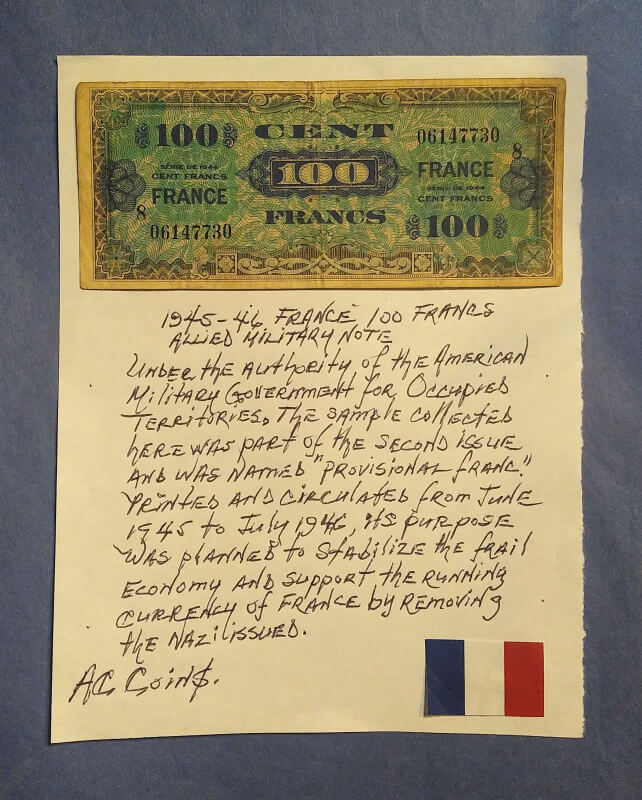 100 CENT 06147730
SÉRIE DE 1944 100 FRANCE 8
CENT FRANCS SÉRIE DE 1944
FRANCE CENT FRANCS
8 FRANCS 100
06147730
1945-46 FRANCE 100 FRANCS
ALLIED MILITARY NOTE
UNDER the AUthority of the AMERICAN
Military GOVERNMENT for Occupied
TERRITORIES. The SAMPLE collected
here WAS PART of the SECOND ISSUE
AND WAS NAMED "PROVISIONAL fRANC."
PRINTED AND CIRCULATED from JUNE
1945 to July 1946, its PURPOSE
WAS PLANNED to STABILIZE the frAil
ECONOMY AND SUPPORT the RUNNING
CURRENCY of FRANCE by REMOVING
the NAZI ISSUED.
AC Coin$.